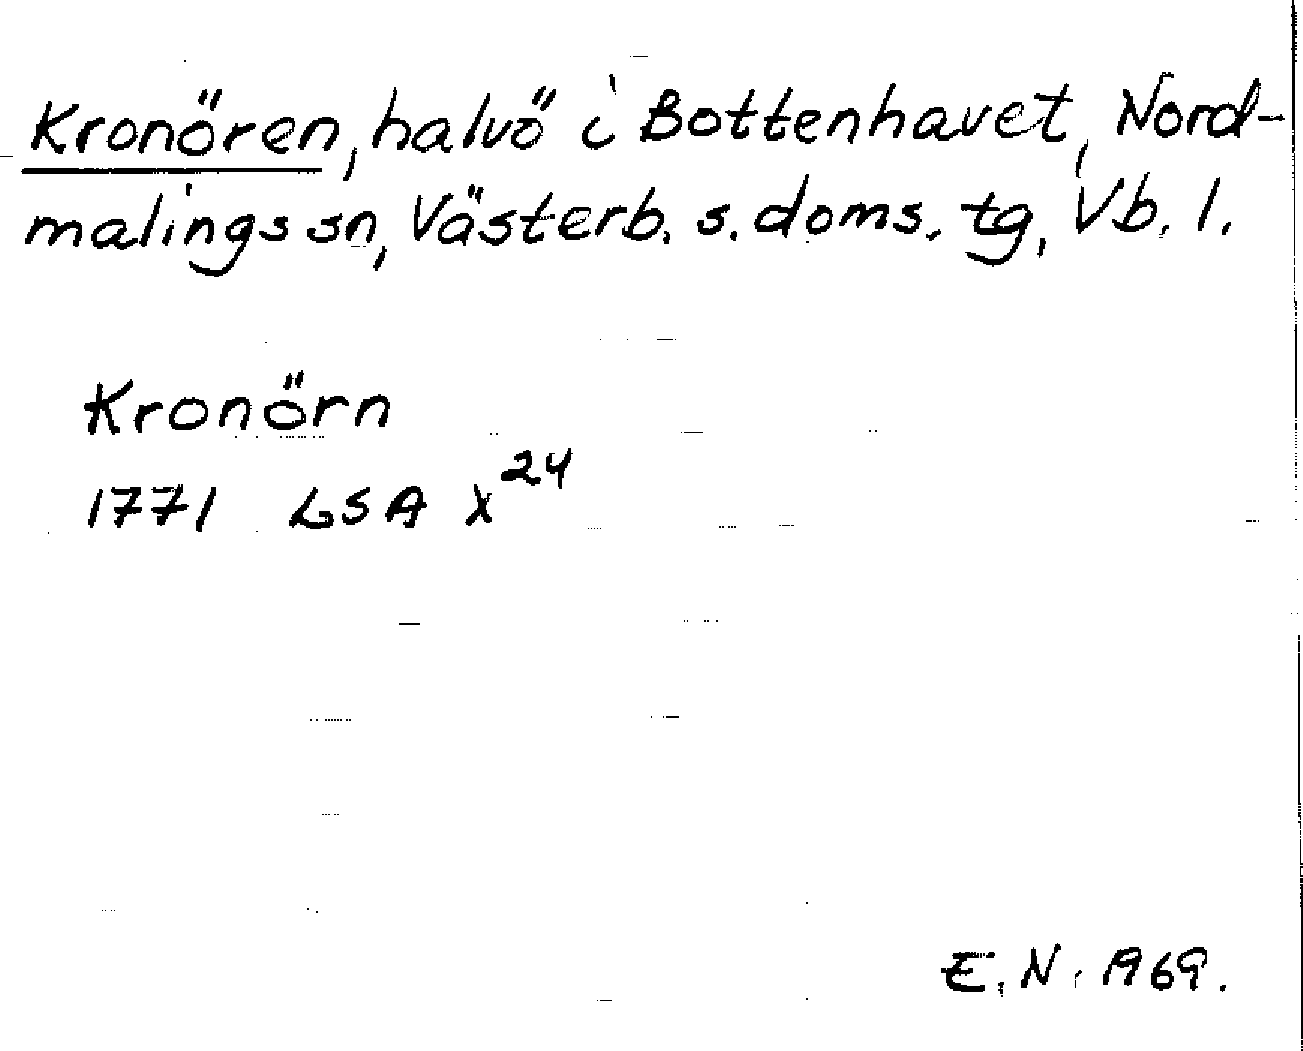 Kronören, halvö i Bottenhavet, Nord-
malings sn, Västerb. s. doms. tg, Vb. l.
Kronörn
1771 LSA X²⁴
E. N. 1969.